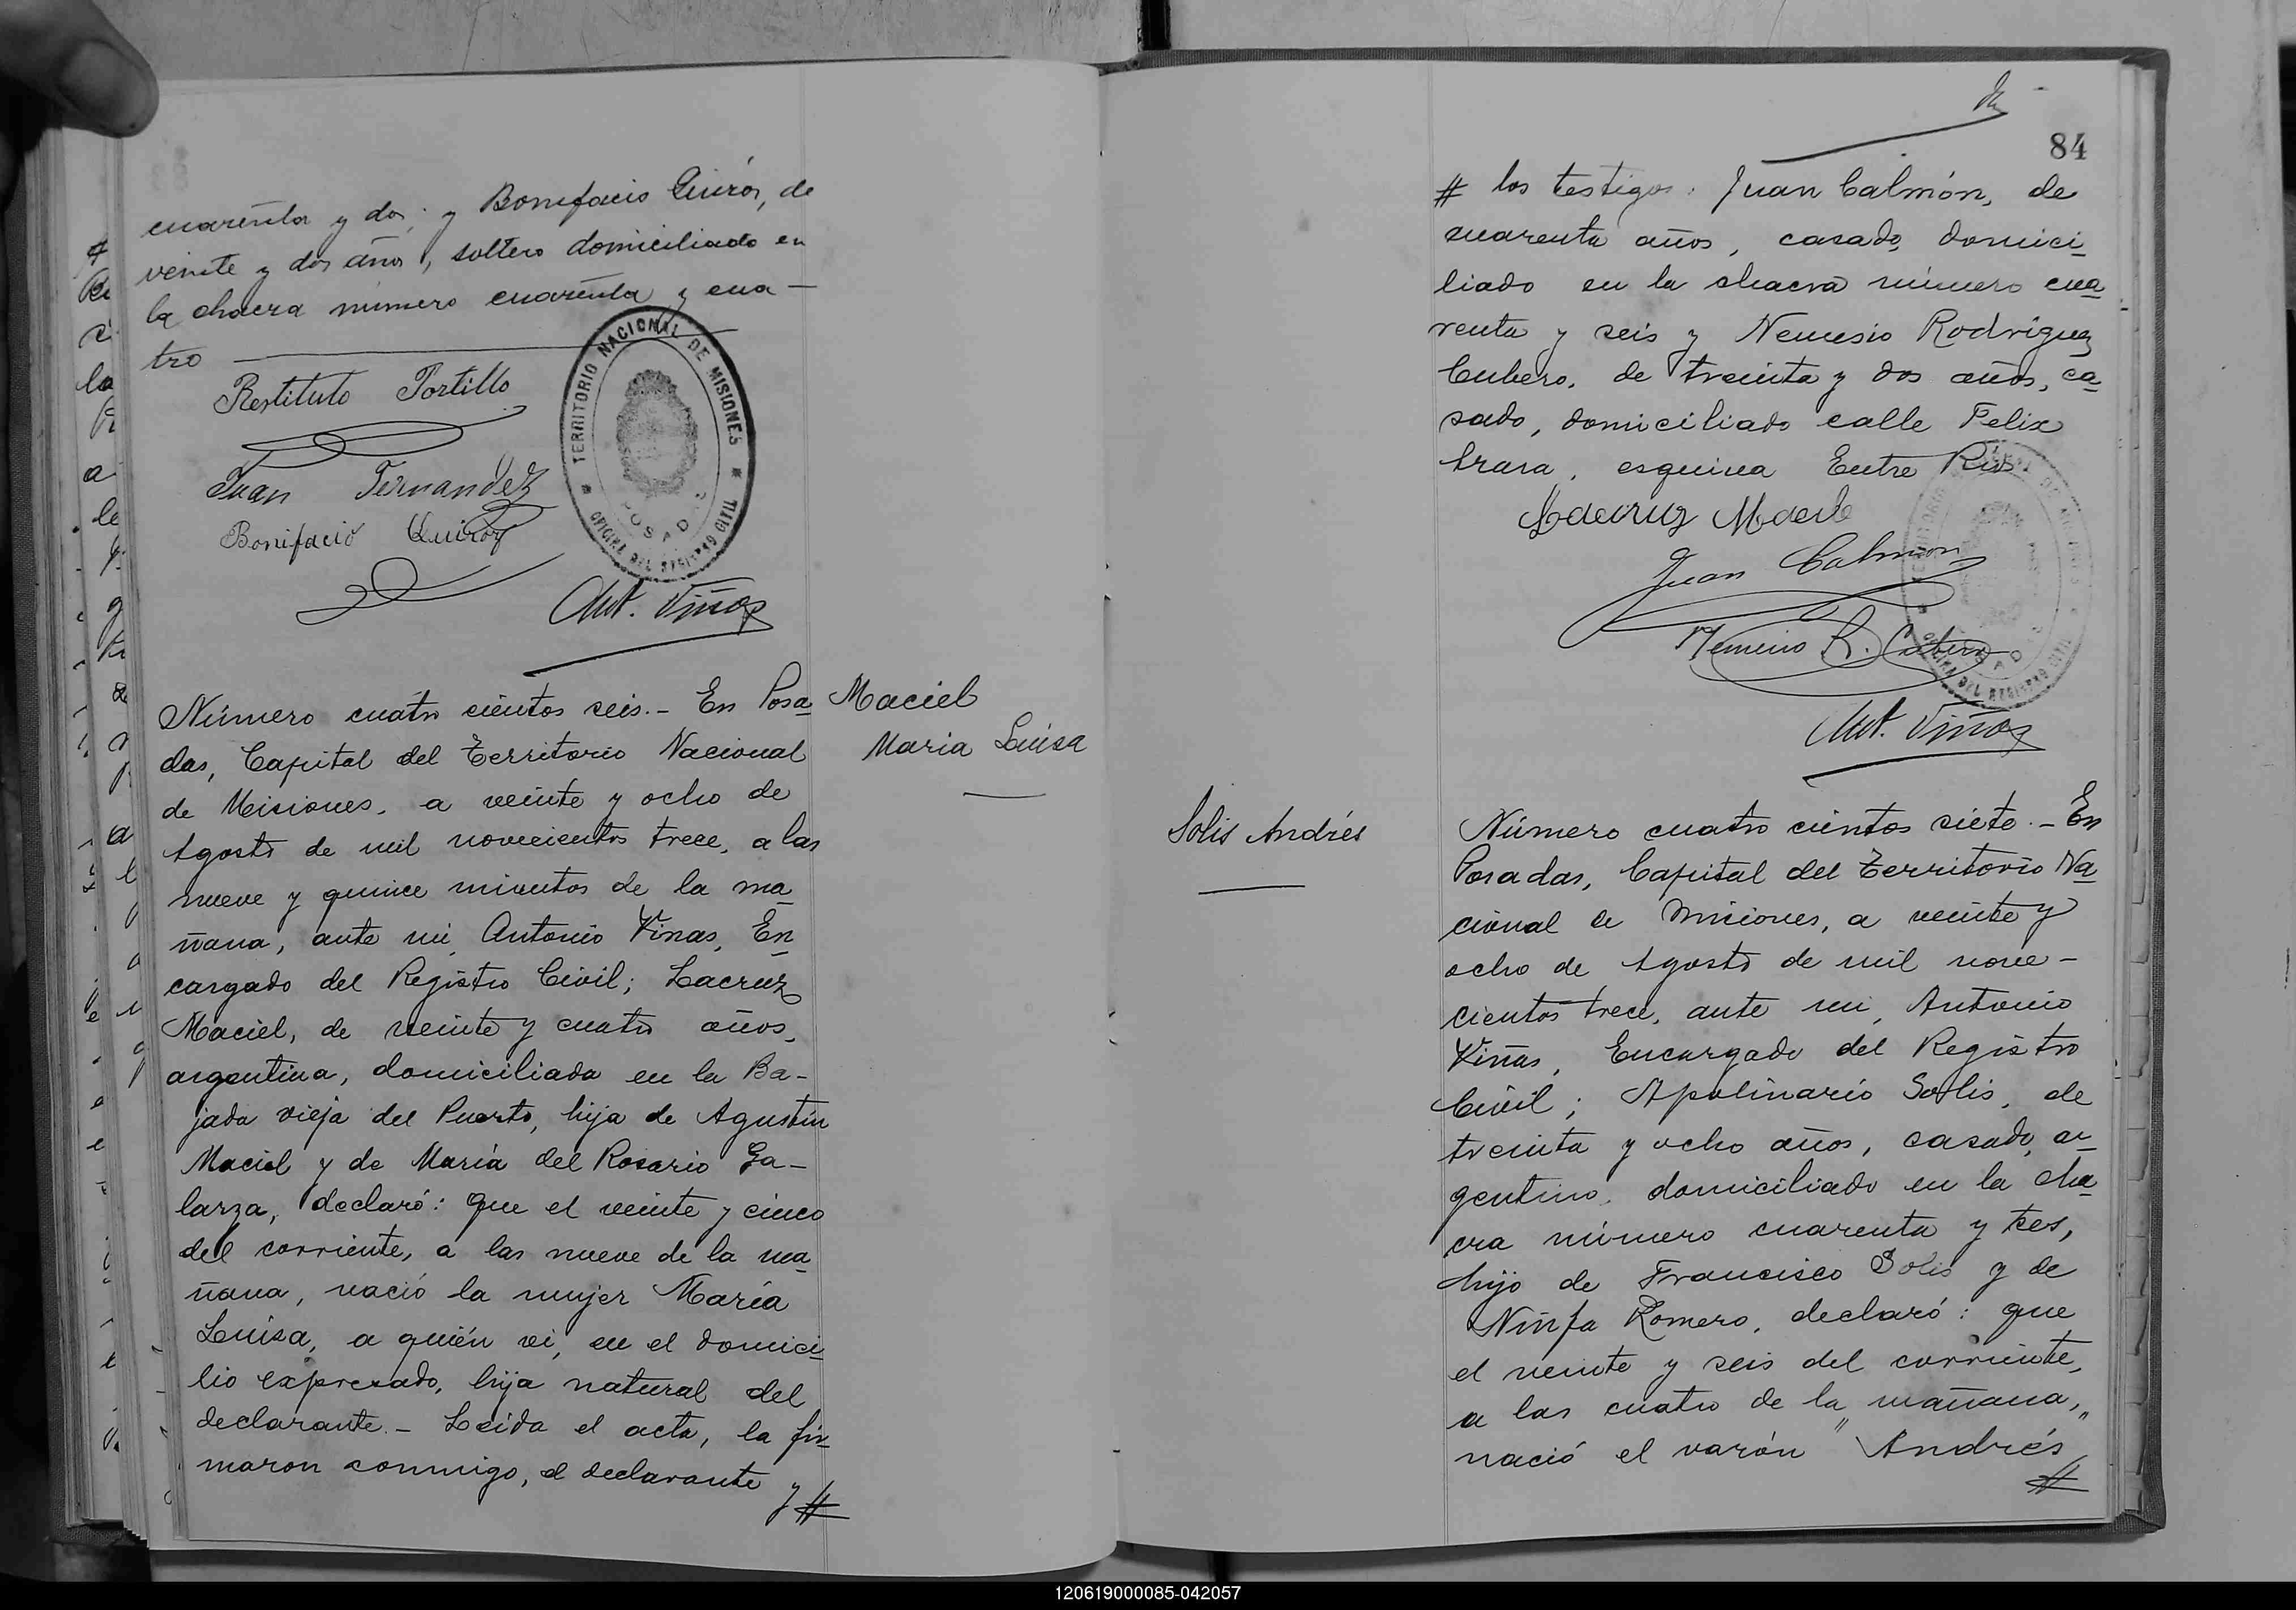 cuarenta y dos; y Bonifacio Quirós, de
veinte y dos años, soltero domiciliado en
la chacra número cuarenta y cua-
tro
Restituto Portillo
Juan Fernandez
Bonifacio Quiroz
TERRITORIO NACIONAL DE MISIONES
POSADAS
OFICINA DEL REGISTRO CIVIL
Ant. Viñas
Maciel
Maria Luisa
Número cuatro cientos seis.- En Posa
das, Capital del Territorio Nacional
de Misiones, a veinte y ocho de
Agosto de mil novecientos trece, a las
nueve y quince minutos de la ma
ñana, ante mi, Antonio Viñas, En
cargado del Registro Civil; Lacruz
Maciel, de veinte y cuatro años,
argentina, domiciliada en la Ba-
jada vieja del Puerto, hija de Agustín
Maciel y de María del Rosario Ga-
larza, declaró: que el veinte y cinco
del corriente, a las nueve de la ma
ñana, nació la mujer María
Luisa, a quién vi, en el domici
lio expresado, hija natural del
declarante.- Leida el acta, la fir
maron conmigo, el declarante y #
84
# los testigos: Juan Calmón, de
cuarenta años, casado, domici
liado en la chacra número cua
renta y seis y Nemesio Rodriguez
Cubero, de treinta y dos años, ca
sado, domiciliado calle Felix
Azara, esquina Entre Rios
Lacruz Maciel
Juan Calmon
Nemesio R. Cubero
OFICINA DEL REGISTRO CIVIL
Ant. Viñas
Solis Andrés
Número cuatro cientos siete.- En
Posadas, Capital del Territorio Na
cional de Misiones, a veinte y
ocho de Agosto de mil nove-
cientos trece, ante mi, Antonio
Viñas, Encargado del Registro
Civil; Apolinario Solis, de
treinta y ocho años, casado, ar
gentino, domiciliado en la cha
cra número cuarenta y tres,
hijo de Francisco Solis y de
Ninfa Romero, declaró: que
el veinte y seis del corriente,
a las cuatro de la mañana,
nació el varón "Andrés"
#
120619000085-042057